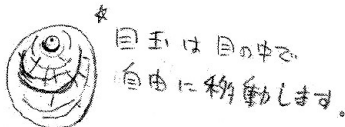 ☆目玉は目の中で
自由に移動します。